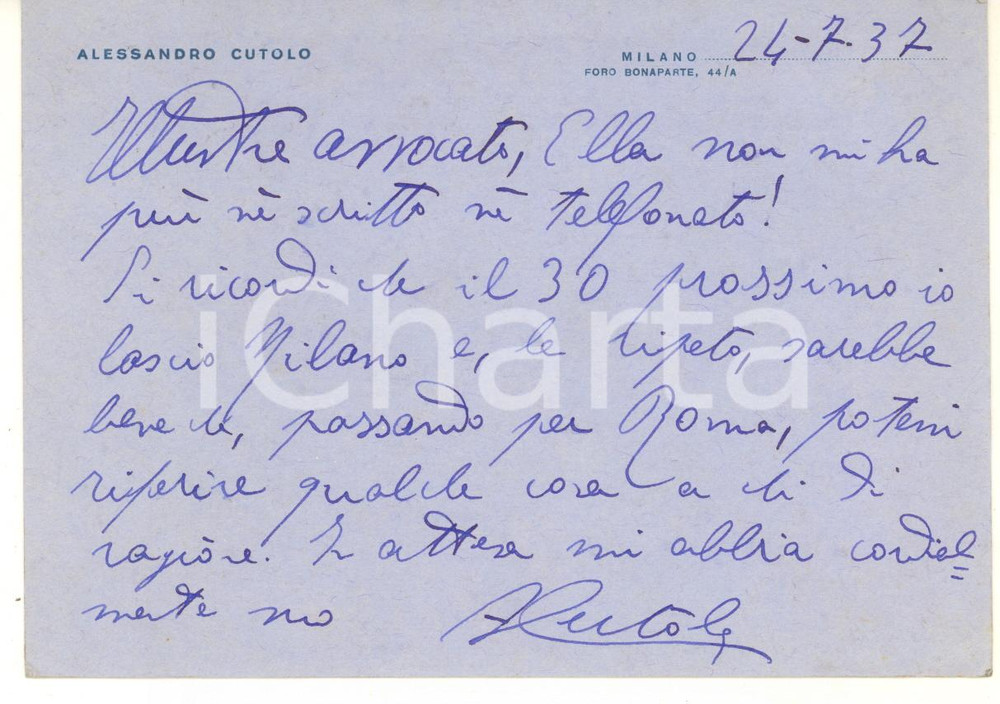 ALESSANDRO CUTOLO
MILANO 24-7-37
FORO BONAPARTE, 44/A
Illustre avvocato, Ella non mi ha
più nè scritto nè telefonato!
Si ricordi che il 30 prossimo io
lascio Milano e, le ripeto, sarebbe
bene che, passando per Roma, potessi
riferire qualche cosa a chi di
ragione. In attesa mi abbia cordial=
mente suo ACutolo
iCharta